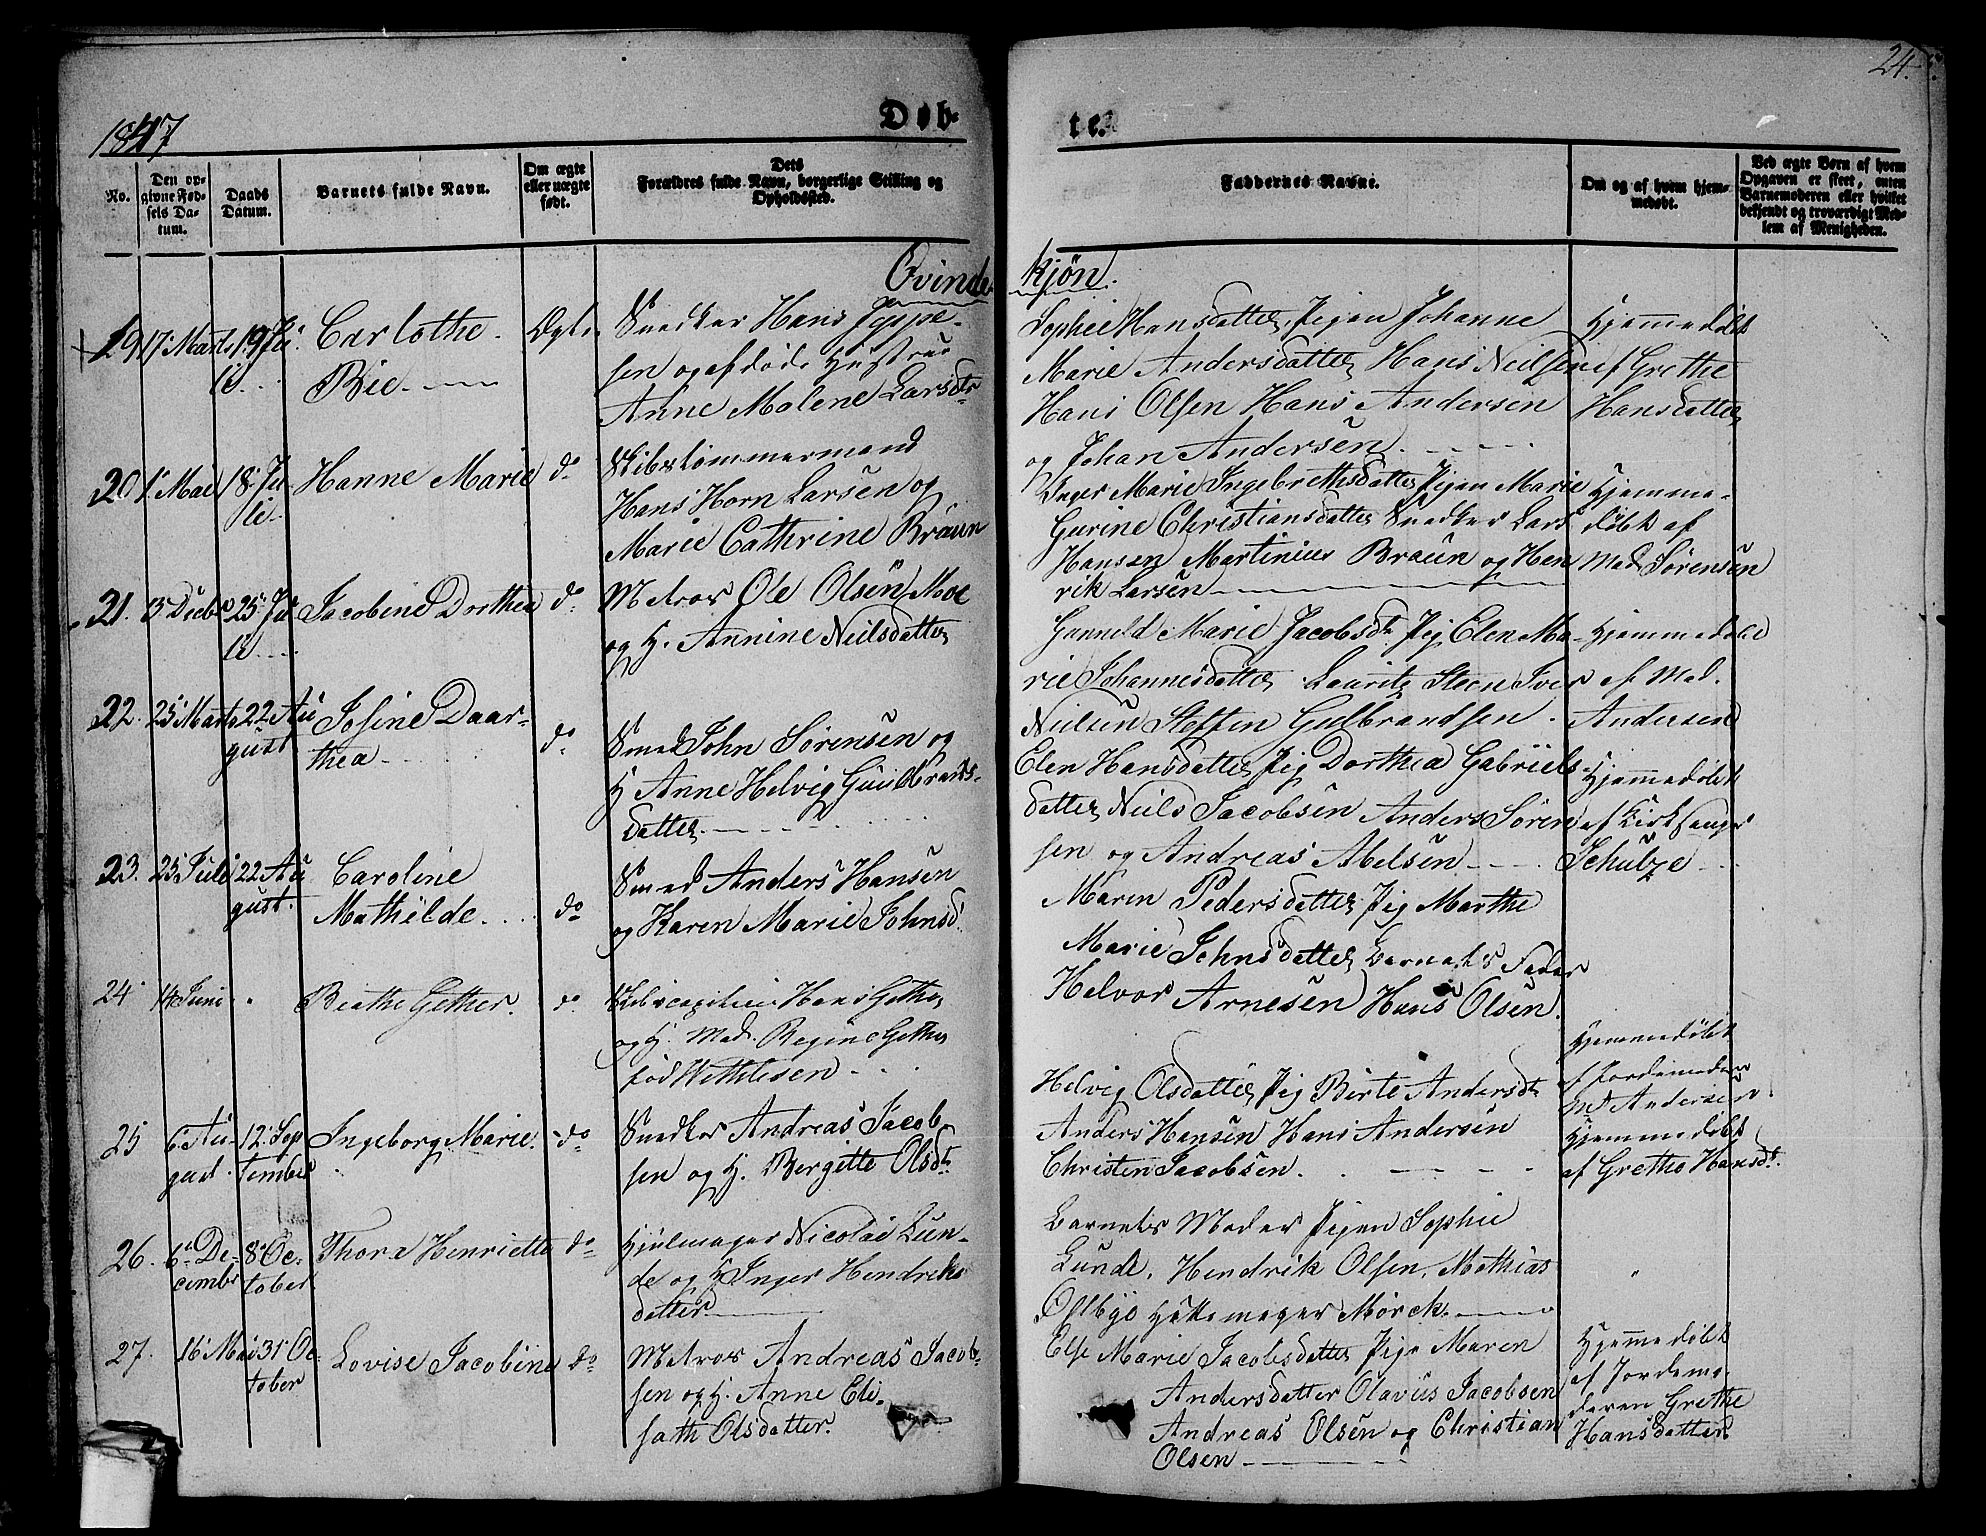 24.
1847
Døb-
te.
No.
Den op-
givne Fød-
sels Da-
tum.
Daabs
Datum.
Barnets fulde Navn.
Om ægte
eller uægte
født.
Dets
Forældres fulde Navn, borgerlige Stilling og
Opholdssted.
Faddernes Navne.
Om og af hvem hjem-
medøbt.
Ved ægte Børn af hvem
Opgaven er skeet, enten
Barnemoderen eller hvilket
bekjendt og troværdigt Med-
lem af Menigheden.
Qvinde-
kjøn.
19 17 Marts 19 Ju-
li
Carlothe
Bie.
Ægte
Snedker Hans Jespe-
sen og afdøde Hustrue
Anne Malene Larsdtr
Sophie Hansdatter, Pigen Johanne
Marie Andersdatter Hans Neilsen
Hans Olsen Hans Andersen
og Johan Andersen.
Hjemmedøbt
af Grethe
Hansdatter
20 1 Mai 18 Ju-
li
Hanne Marie
do
Skibstømmermand
Hans Horn Larsen og
Marie Cathrine Braun
Inger Marie Ingebrethsdatter Pigen Marie
Gurine Christiansdatter Snedker Lars
Hansen Martinius Braun og Hen
rik Larsen
Hjemme-
døbt af
Mad. Sørensen
21. 3 Decbr 25 Ju
li
Jacobine Dorthea
do
Matros Ole Olsen Moe
og H. Annine Neilsdatter
Gunneld Marie Jacobsdt. Pig Elen Ma-
rie Johannesdatter Lauritz Steen Iver
Nielsen Steffen Gulbrandsen.
Hjemmedøbt
af Mad.
Andersen
22. 25 Marts 22 Au
gust
Josine Daar-
thea
do
Smed John Sørensen og
H Anne Helvig Guldbrands-
datter.
Elen Hansdatter Pig Dorthea Gabriels-
datter Neils Jacobsen Anders Søren
sen og Andreas Abelsen
Hjemmedøbt
af Kirksanger
Schulze
23. 25 Juli 22 Au
gust.
Caroline
Mathilde.
do
Smed Anders Hansen
og Karen Marie Johnsd.
Maren Pedersdatter Pig Marthe
Marie Johnsdatter Barnets Fader
Helvor Arnesen Hans Olsen.
24 14 Juni
Beathe Gether.
do
Skibscapitain Hans Gether
og H. Mad. Regine Gether
fød Wethlesen
Hjemmedøbt
af Jordemoder
Md Andersen.
25 6 Au-
gust. 12 Sep
tember
Ingeborg Marie.
do
Snedker Andreas Jacob
sen og H. Bergitte Olsdt.
Helvig Olsdatter Pig Birte Andersdt
Anders Hansen Hans Andersen
Christen Jacobsen.
Hjemmedøbt
af Grethe Hansdt.
26. 6 De-
cember 8 Oc-
tober.
Thora Henriette
do
Hjulmager Nicolai Lun-
de og H Inger Hendriks
datter
Barnets Moder Pigen Sophie
Lunde, Hendrik Olsen, Mathias
Oselbye Hattemager Mørck.
27. 16 Mai 31 Oc-
tober
Lovise Jacobine
do
Matros Andreas Jacob-
sen og H. Anne Eli-
sath Olsdatter.
Else Marie Jacobsdatter Pige Maren
Andersdatter Olavus Jacobsen
Andreas Olsen og Christian
Olsen
Hjemmedøbt
af Jordemo-
deren Grethe
Hansdatter